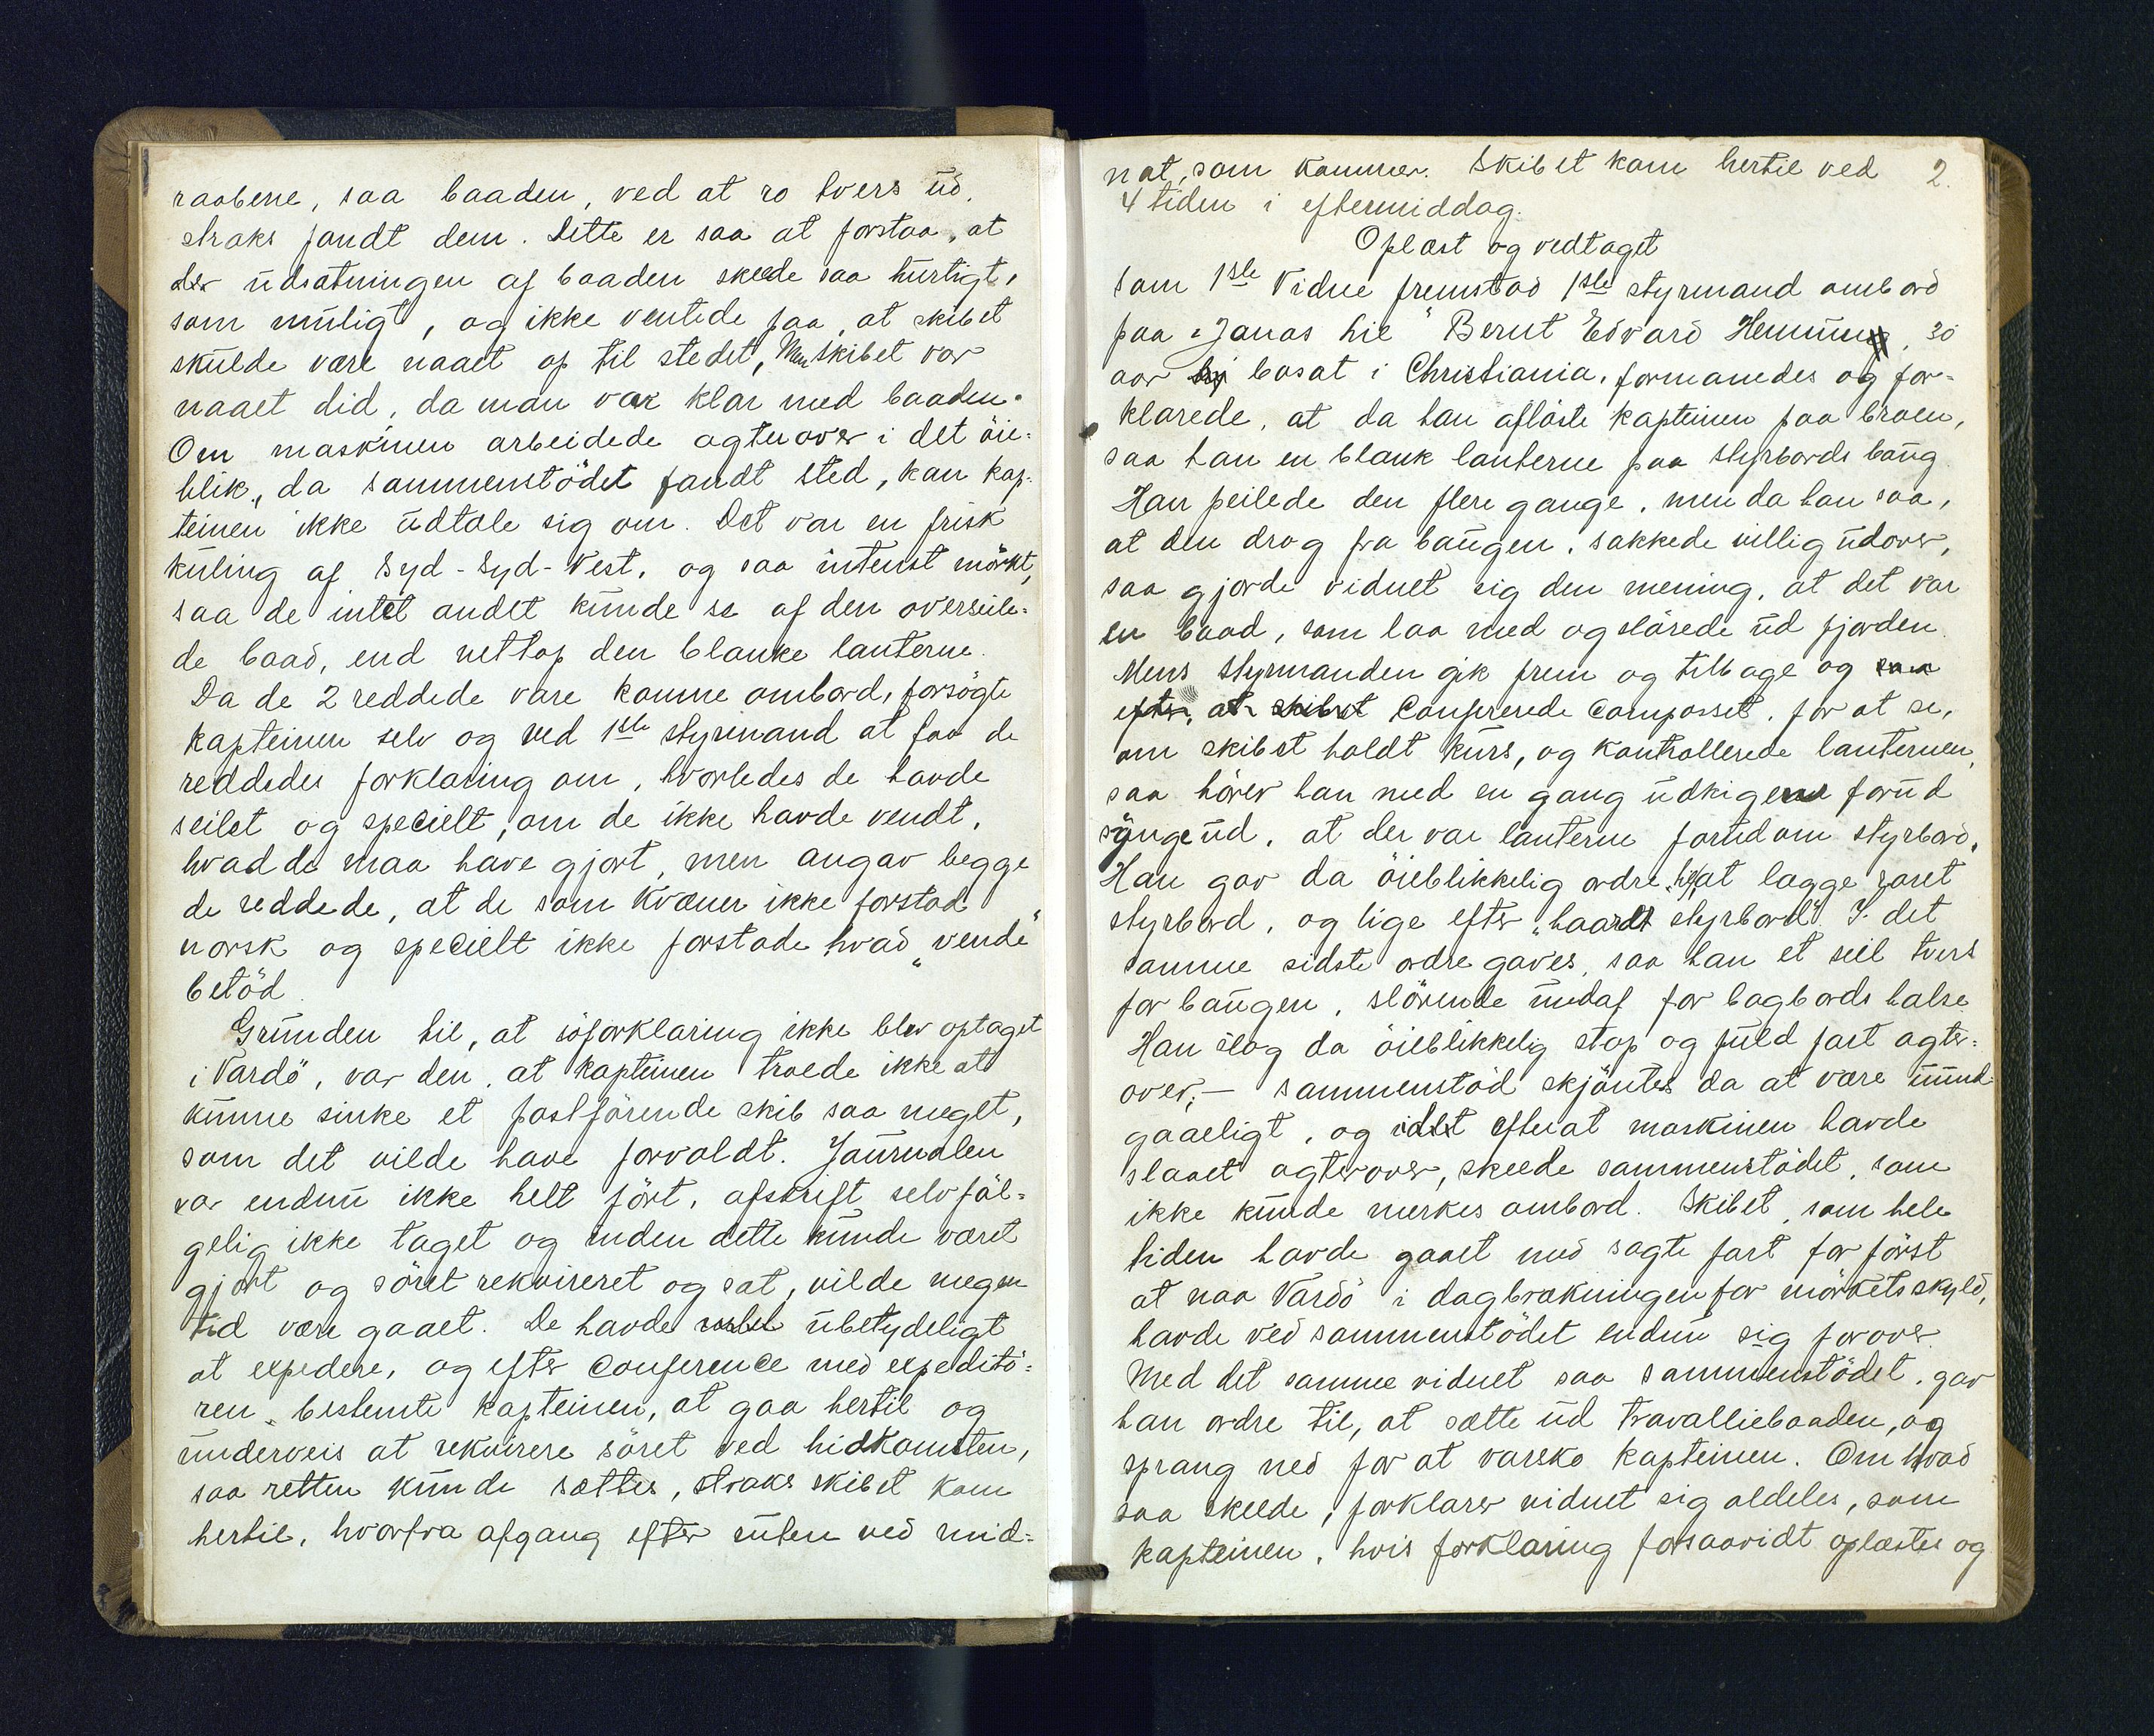 raabene, saa baaden, ved at ro tvers ud,
straks fandt dem. Dette er saa at forstaa, at
der udsætningen af baaden skeede saa hurtigt,
som muligt, og ikke ventede paa, at skibet
skulde være naaet op til stedet, Men skibet var
naaet did, da man var klar med baaden.
Om maskinen arbeidede agterover i det öie-
blik, da sammenstödet fandt sted, kan kap-
teinen ikke udtale sig om. Det var en frisk
kuling af Syd-Syd-Vest, og saa intenst mörkt,
saa de intet andet kunde se af den overseile-
de baad, end nettop den blanke lanterne.
Da de 2 reddede vare komne ombord, forsögte
kapteinen selv og ved 1ste styrmand at faa de
reddedes forklaring om, hvorledes de havde
seilet og specielt, om de ikke havde vendt,
hvad de maa have gjort, men angav begge
de reddede, at de som Kvæner ikke forstod
norsk og specielt ikke forstode hvad „vende"
betöd.
Grunden til, at söforklaring ikke blev optaget
i Vardö, var den, at kapteinen troede ikke at
kunne sinke et postförende skib saa meget,
som det vilde have forvoldt. Journalen
var endnu ikke helt fört, afskrift selvföl-
gelig ikke taget og inden dette kunde været
gjort og söret rekvireret og sat, vilde megen
tid være gaaet. De havde ubetydeligt
at expedere, og efter Conference med expeditö-
ren, bestemte kapteinen, at gaa hertil og
underveis at rekvirere söret ved hidkomsten,
saa retten kunde sættes, straks skibet kom
hertil, hvorfra afgang efter ruten ved mid-
nat, som kommer. Skibet kom hertil ved 2.
4 tiden i eftermiddag.
Oplæst og vedtaget
Som 1ste Vidne fremstod 1ste styrmand ombord
paa „Jonas Lie" Bernt Edvard 30
aar bosat i Christiania, formanedes og for-
klarede, at da han aflöste kapteinen paa broen,
saa han en blank lanterne paa styrbords baug.
Han peilede den flere gange, men da han saa,
at den drog fra baugen, sakkede villig udover,
saa gjorde vidnet sig den mening, at det var
en baad, som laa med og slörede ud fjorden.
Mens styrmanden gik frem og tilbage og saa
efter, at skibet Confererede Compasset, for at se,
om skibet holdt kurs, og kontrollerede lanternen,
saa hörer han med en gang udkigene forud
synge ud, at der var lanterne forud om styrbord.
Han gav da öieblikkelig ordre at lægge roret
styrbord, og lige efter „haardt styrbord". I det
samme sidste ordre gaves, saa han et seil tvers
for baugen, slörende undaf for bagbords halse.
Han slog da öieblikkelig stop og fuld fart agter-
over; – sammenstöd skjöntes da at være uund-
gaaeligt, og idet efterat maskinen havde
slaaet agterover, skeede sammenstödet, som
ikke kunde merkes ombord. Skibet, som hele
tiden havde gaaet med sagte fart for först
at naa Vardö i dagbrækningen for mörkets skyld,
havde ved sammenstödet endnu sig forover.
Med det samme vidnet saa sammenstödet, gav
han ordre til, at sætte ud Travalliebaaden, og
sprang ned for at varsko kapteinen. Om hvad
saa skeede, forklarer vidnet sig aldeles, som
kapteinen, hvis forklaring forsaavidt oplæstes og